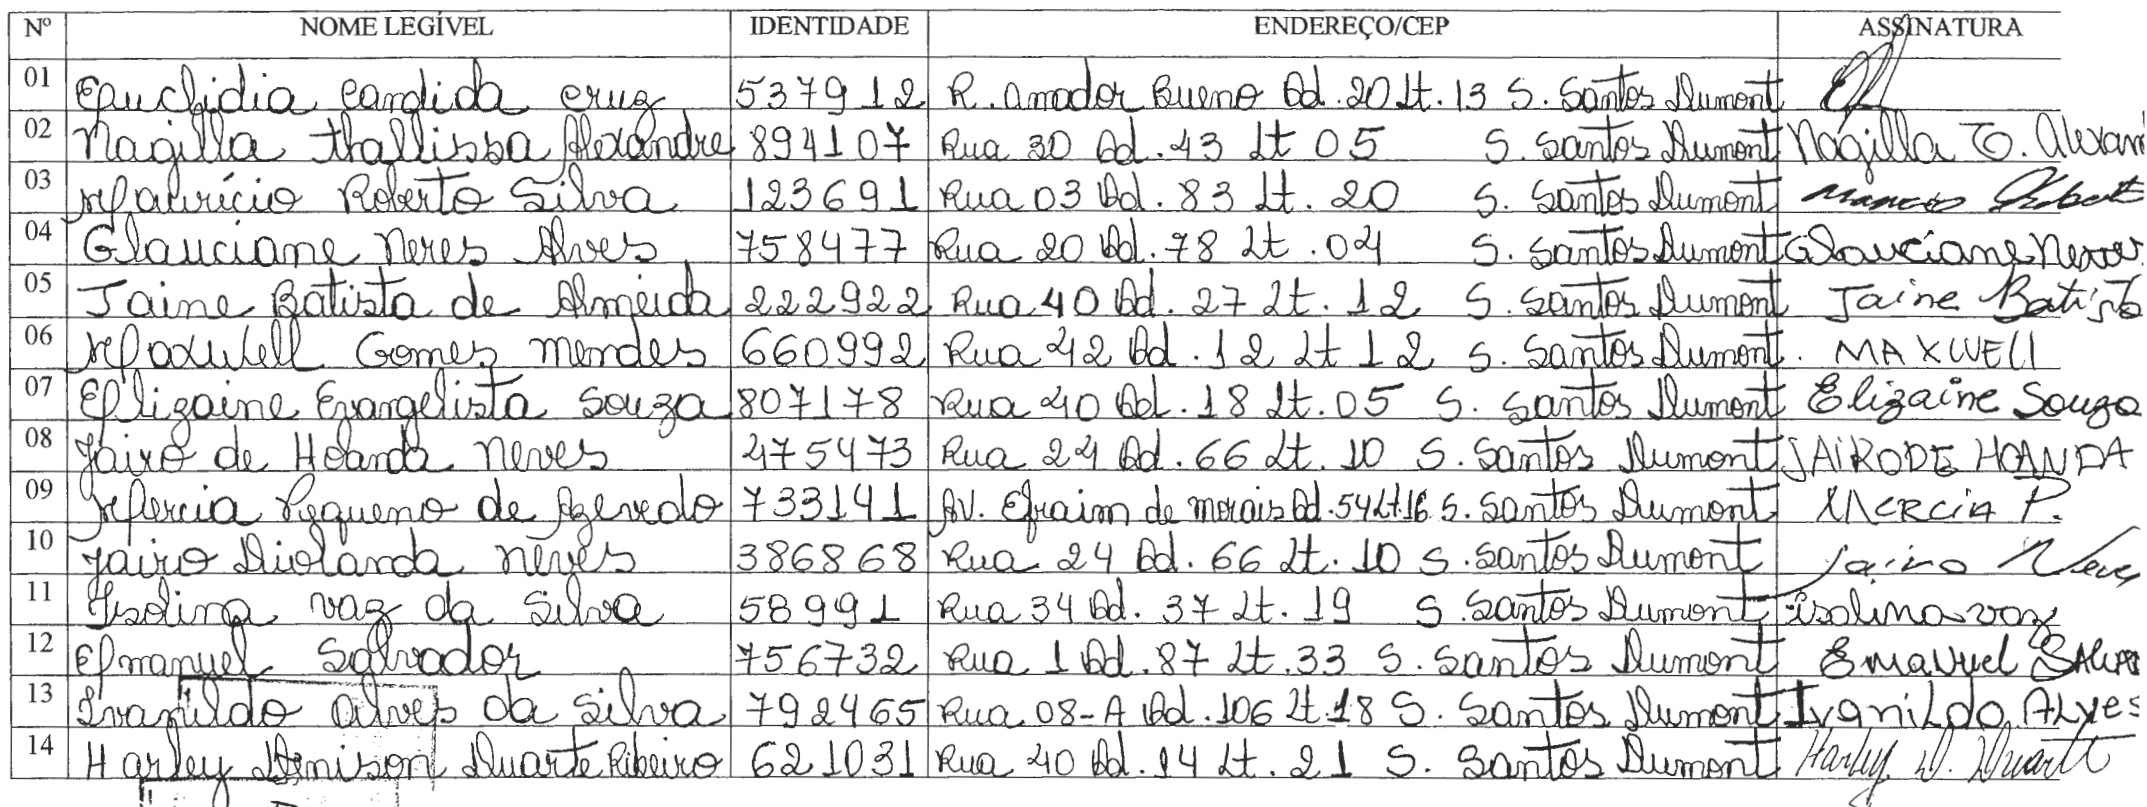 Nº NOME LEGÍVEL IDENTIDADE ENDEREÇO/CEP ASSINATURA
01 Euclidia Candida Cruz 537912 R. Amador Bueno Qd. 20 Lt. 13 S. Santos Dumont
02 Nagilla Thallissa Alexandre 894107 Rua 30 Qd. 43 Lt 05 S. Santos Dumont Nágilla T. Alexan
03 Maurício Roberto Silva 123691 Rua 03 Qd. 83 Lt. 20 S. Santos Dumont
04 Glauciane Neres Alves 758477 Rua 20 Qd. 78 Lt. 04 S. Santos Dumont Glauciane Neres
05 Jaine Batista de Almeida 222922 Rua 40 Qd. 27 Lt. 12 S. Santos Dumont Jaine Batista
06 Maxwell Gomes Mendes 660992 Rua 42 Qd. 12 Lt 12 S. Santos Dumont. MAXWELL
07 Elizaine Evangelista Souza 807178 Rua 40 Qd. 18 Lt. 05 S. Santos Dumont Elizaine Souza
08 Jairo de Holanda Neves 475473 Rua 24 Qd. 66 Lt. 10 S. Santos Dumont JAIRO DE HOANDA
09 Mercia Pequeno de Azevedo 733141 Av. Efraim de Morais Qd. 54 Lt 16 S. Santos Dumont MERCIA P.
10 Jairo Diolanda Neves 386868 Rua 24 Qd. 66 Lt. 10 S. Santos Dumont Jairo Neves
11 Isolina Vaz da Silva 58991 Rua 34 Qd. 37 Lt. 19 S. Santos Dumont isolina vaz
12 Emanuel Salvador 756732 Rua 1 Qd. 87 Lt. 33 S. Santos Dumont Emanuel
13 Ivanildo Alves da Silva 792465 Rua 08-A Qd. 106 Lt 18 S. Santos Dumont Ivanildo Alves
14 Harley Denison Duarte Ribeiro 621031 Rua 40 Qd. 14 Lt. 21 S. Santos Dumont Harley D. Duarte